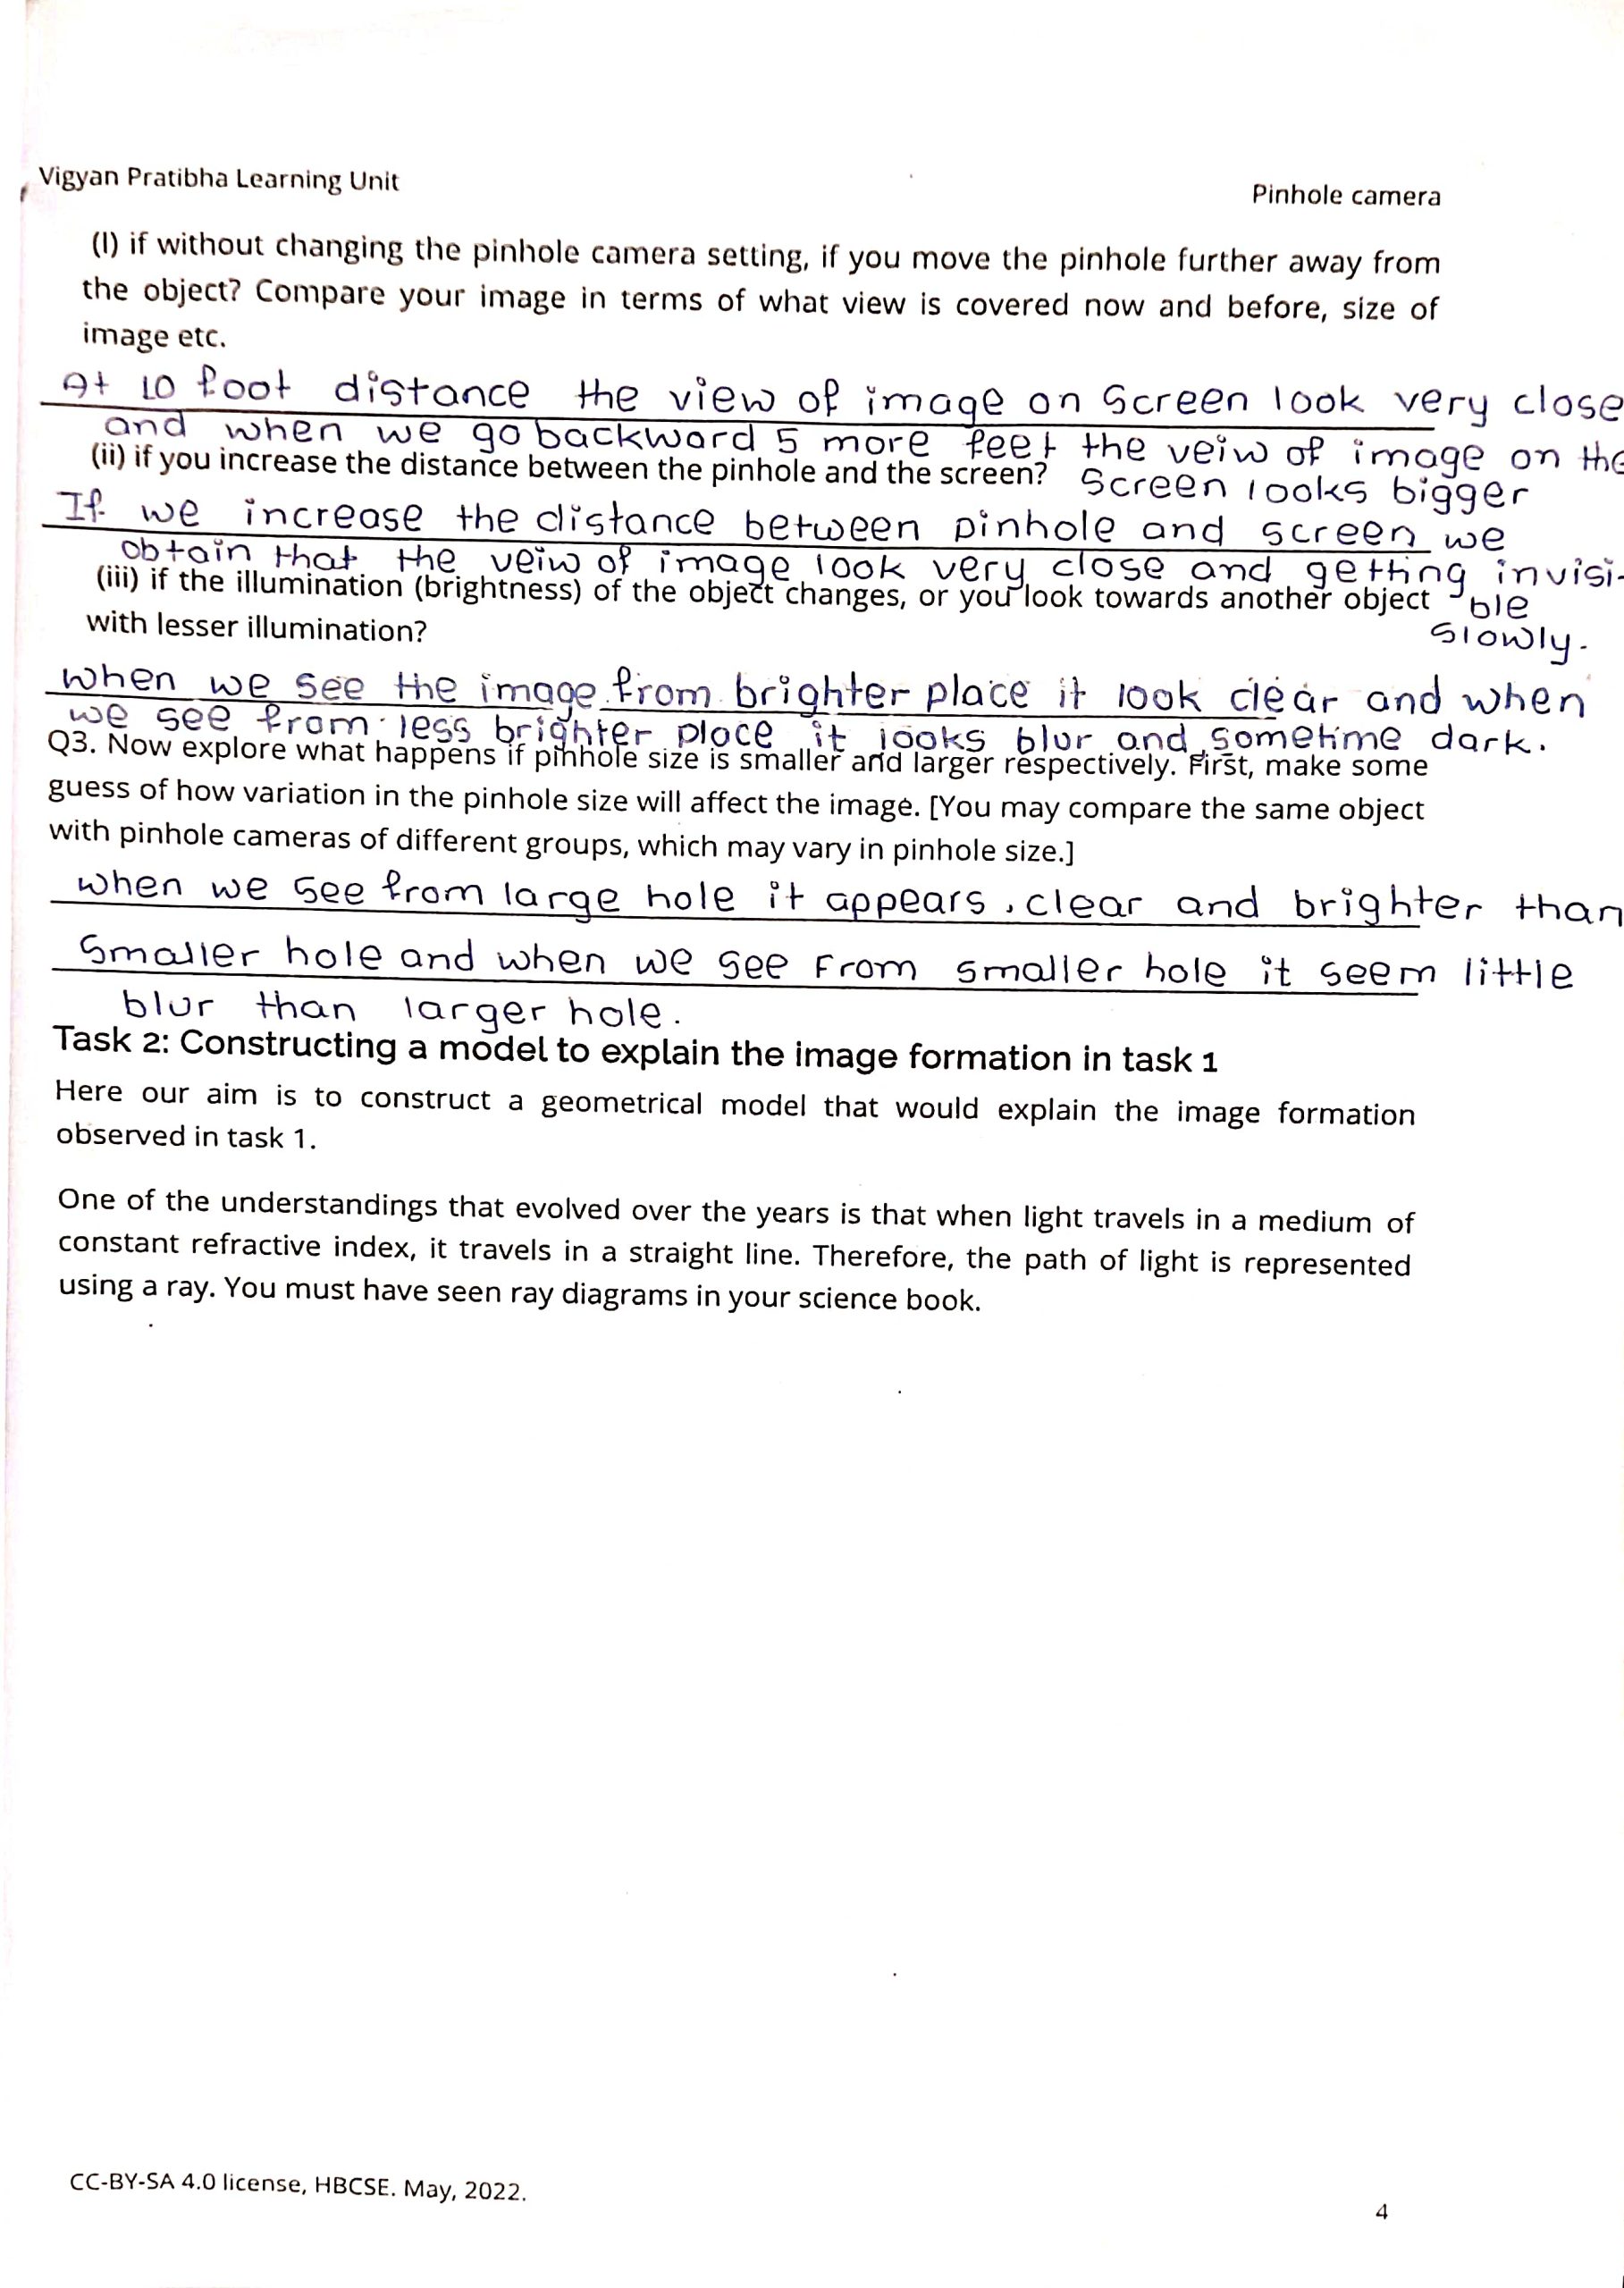 Vigyan Pratibha Learning Unit
Pinhole camera
(I) if without changing the pinhole camera setting, if you move the pinhole further away from
the object? Compare your image in terms of what view is covered now and before, size of
image etc.
At 10 foot distance the view of image on Screen look very close
and when we go backward 5 more feet the veiw of image on the
Screen looks bigger
(ii) if you increase the distance between the pinhole and the screen?
If we increase the distance between pinhole and screen we
obtain that the veiw of image look very close and getting invisi-
ble
slowly.
(iii) if the illumination (brightness) of the object changes, or you look towards another object
with lesser illumination?
when we see the image from brighter place it look clear and when
we see from less brighter place it looks blur and sometime dark.
Q3. Now explore what happens if pinhole size is smaller and larger respectively. First, make some
guess of how variation in the pinhole size will affect the image. [You may compare the same object
with pinhole cameras of different groups, which may vary in pinhole size.]
when we see from large hole it appears, clear and brighter than
Smaller hole and when we see From smaller hole it seem little
blur than larger hole.
Task 2: Constructing a model to explain the image formation in task 1
Here our aim is to construct a geometrical model that would explain the image formation
observed in task 1.
One of the understandings that evolved over the years is that when light travels in a medium of
constant refractive index, it travels in a straight line. Therefore, the path of light is represented
using a ray. You must have seen ray diagrams in your science book.
CC-BY-SA 4.0 license, HBCSE. May, 2022.
4